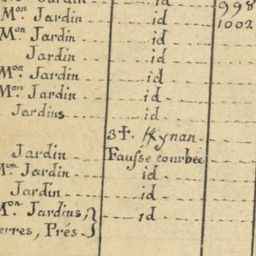 Jardin id 998
Mon Jardin id 1002
Mon Jardin id
Jardin id
Mon Jardin id
Mon Jardin id
Jardins id
3t. Kynan
Jardin Fausse courbée
Mon Jardin id
Jardin id
Mon Jardins, id
erres, Prés